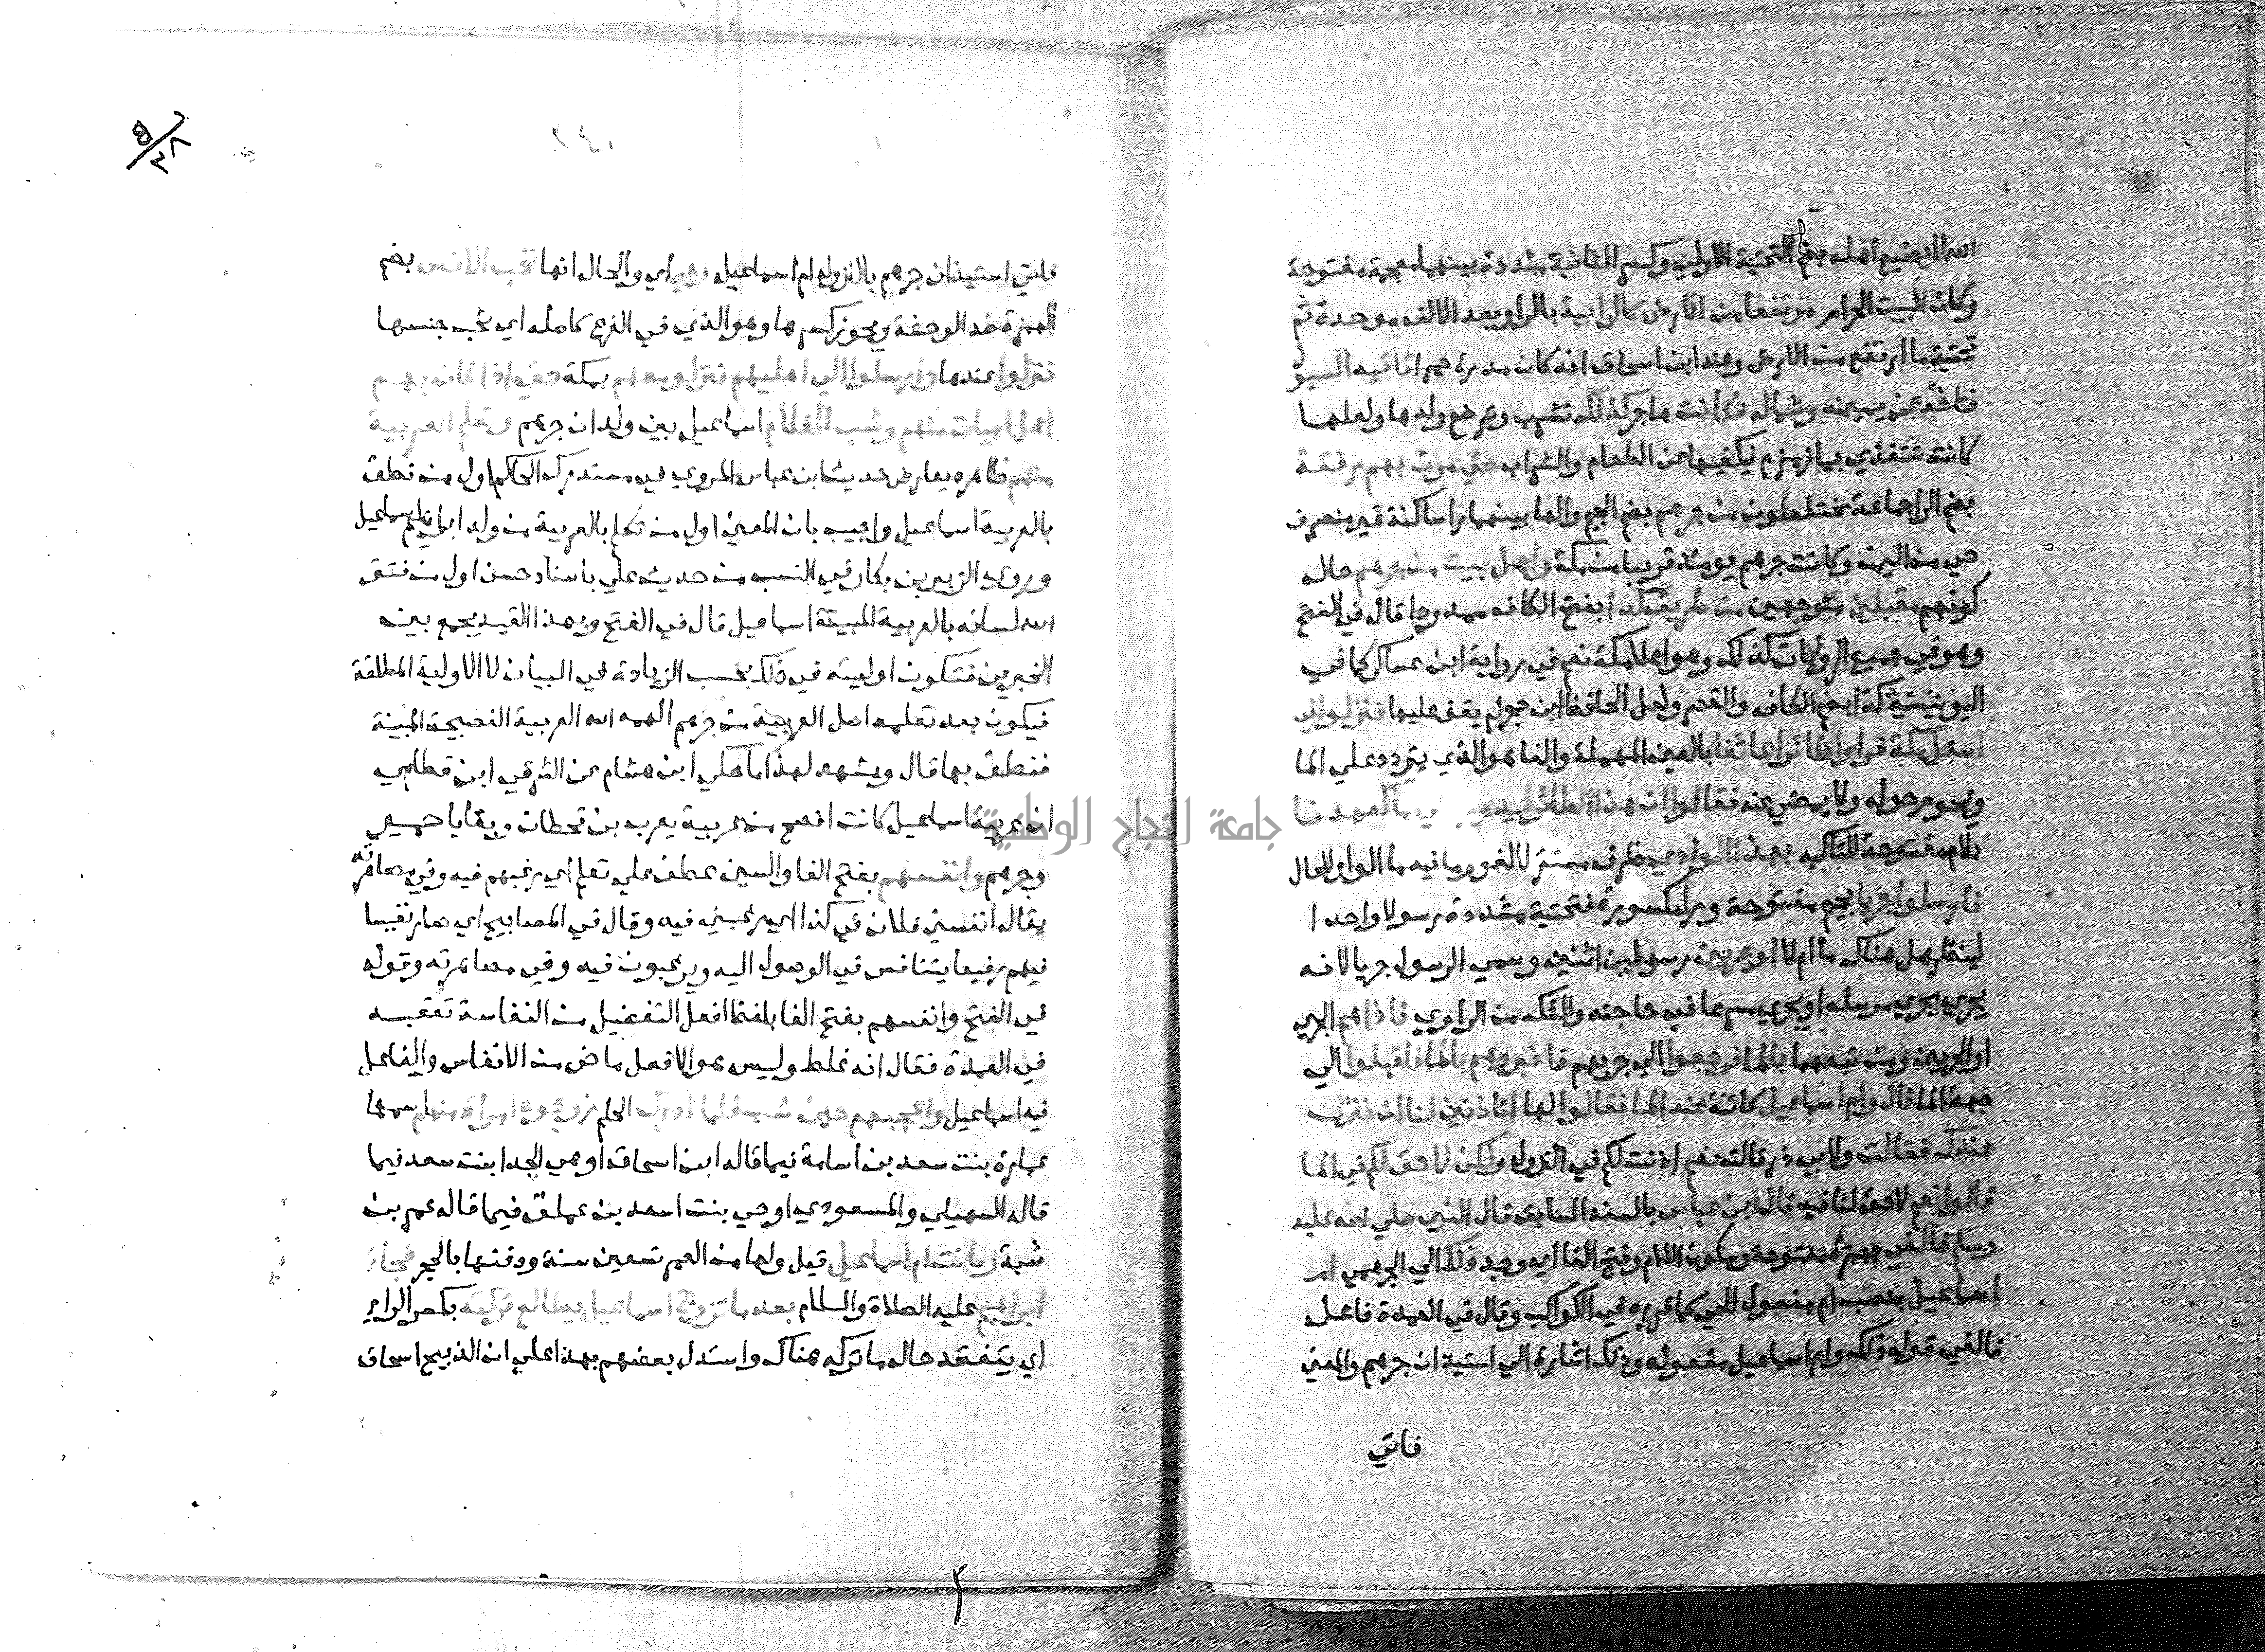 الله لا يضيع اهله بضم التحتية الاولي وكسر الثانية مشددة بينهما معجمة مفتوحة
وكان البيت الحرام مرتفعا من الارض كالرابية بالراء وبعد الالف موحدة ثم
تحتية ما ارتفع من الارض وعند ابن اسحاق انه كان مدرة حمرا تاتيه السيول
فتاخذ عن يمينه وشماله فكانت هاجر كذلك تشرب وترضع ولدها ولعلها
كانت تتغذي بماء زمزم فيكفيها عن الطعام والشراب حتي مرت بهم رفقة
بضم الراء جماعة مختلطون من جرهم بضم الجيم والها بينهما را ساكنة غير منصرف
حي من اليمن وكانت جرهم يومئذ قريبا من مكة او اهل بيت من جرهم حال
كونهم مقبلين متوجهين من طريق كدا بفتح الكاف ممدودا قال في الفتح
وهو في جميع الروايات كذلك وهو اعلا مكة نعم في رواية ابن عساكر كما في
اليونينية كدا بضم الكاف والقصر ولعل الحافظ ابن حجر لم يقف عليها فنزلوا في
اسفل مكة فراوا طائرا عائفا بالعين المهملة والفا هو الذي يتردد علي الما
ويحوم حوله ولا يمضي عنه فقالوا ان هذا الطائر ليدور علي ما لعهدنا
بلام مفتوحة للتاكيد بهذا الوادي ظرف مستقر لا لغو وما فيه ما الواو للحال
فارسلوا جريا بجيم مفتوحة وراء مكسورة فتحتية مشددة رسولا واحدا
لينظر هل هناك ما ام لا او جريين رسولين اثنين وسمي الرسول جريا لانه
يجري مجري مرسله او يجري مسرعا في حاجته والشك من الراوي فاذا هم الجري
او الجريين ومن تبعهما بالما فرجعوا الي جرهم فاخبروهم بالما فاقبلوا الي
جهة الما قال وام اسماعيل كائنة عند الما فقالوا لها اتاذنين لنا ان ننزل
عندك فقالت ولابي ذر قالت نعم اذنت لكم في النزول ولكن لا حق لكم في الما
قالوا نعم لا حق لنا فيه قال ابن عباس بالسند السابق قال النبي صلي الله عليه
وسلم فالفي بهمزة مفتوحة وسكون اللام وفتح الفا اي وجد ذلك الي الجرهمي ام
اسماعيل بنصب ام مفعول الفي كما قرره في الكواكب وقال في العمدة فاعل
فالفي قوله ذلك وام اسماعيل مفعوله وذلك اشارة الي استيذان جرهم والمعني
فاتي
فاتي استيذان جرهم بالنزول ام اسماعيل وهي اي والحال انها تحب الانس بضم
الهمزة ضد الوحشة ويجوز كسرها وهو الذي في الفرع كاصله اي تحب جنسها
فنزلوا عندها وارسلوا الي اهليهم فنزلوا معهم بمكة حتي اذا كان بهم
اهل ابيات منهم وشب الغلام اسماعيل بين ولدان جرهم وتعلم العربية
منهم ظاهره يعارض حديث ابن عباس المروي في مستدرك الحاكم اول من نطق
بالعربية اسماعيل واجيب بان المعني اول من تكلم بالعربية من ولد ابراهيم اسماعيل
وروي الزبير بن بكار في النسب من حديث علي باسناد حسن اول من فتق
الله لسانه بالعربية المبينة اسماعيل قال في الفتح وبهذا القيد يجمع بين
الخبرين فتكون اوليته في ذلك بحسب الزيادة في البيان لا الاولية المطلقة
فيكون بعد تعلمه اصل العربية من جرهم الهمه الله العربية الفصيحة المبينة
فنطق بها قال ويشهد لهذا ما حكي ابن هشام عن الشرقي ابن قطامي
ان عربية اسماعيل كانت افصح من عربية يعرب بن قحطان وبقايا حمير
وجرهم وانفسهم بفتح الفا والسين عطف علي تعلم اي رغبهم فيه وفي مصاهرته
يقال انفسني فلان في كذا اي رغبني فيه وقال في المصابيح اي صار نفيسا
فيهم رفيعا يتنافس في الوصول اليه ويرغبون فيه وفي مصاهرته وقوله
في الفتح وانفسهم بفتح الفا بلفظ افعل التفضيل من النفاسة تعقبه
في العمدة فقال انه غلط وليس هو الا فعل ماض من الانفاس والفاعل
فيه اسماعيل واعجبهم حين شب فلما ادرك الحلم زوجوه امراة منهم اسمها
عمارة بنت سعد بن اسامة فيما قاله ابن اسحاق او هي الجدا بنت سعد فيما
قاله السهيلي والمسعودي او حي بنت اسعد بن عملق فيما قاله عمر بن
شبة وماتت ام اسماعيل قيل ولها من العمر تسعين سنة ودفنها بالحجر فجاء
ابراهيم عليه الصلاة والسلام بعد ما تزوج اسماعيل يطالع تركته بكسر الراء
اي يتفقد حال ما تركه هناك واستدل بعضهم بهذا علي ان الذبيح اسحاق
جامعة النجاح الوطنية